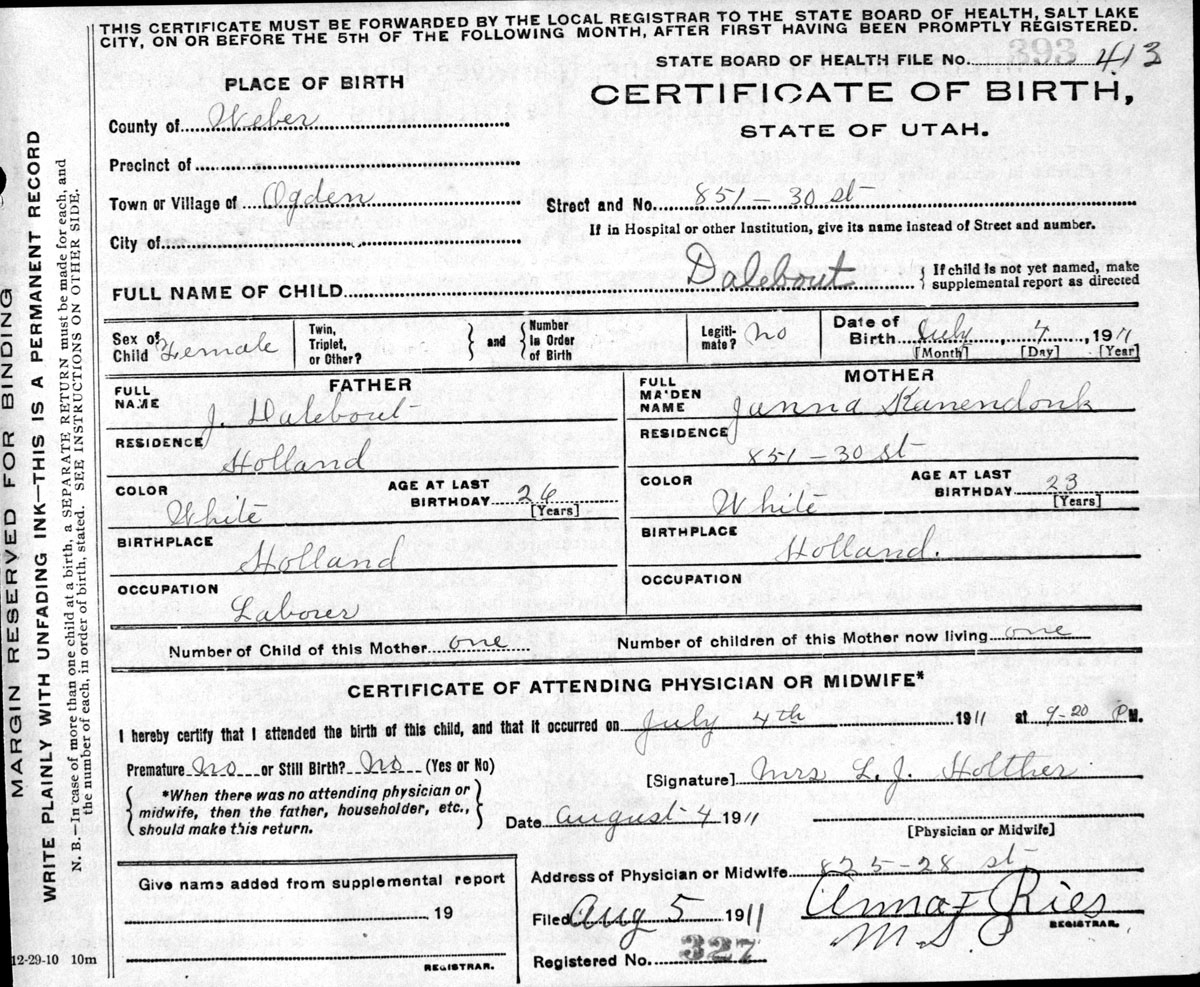 THIS CERTIFICATE MUST BE FORWARDED BY THE LOCAL REGISTRAR TO THE STATE BOARD OF HEALTH, SALT LAKE
CITY, ON OR BEFORE THE 5TH OF THE FOLLOWING MONTH, AFTER FIRST HAVING BEEN PROMPTLY REGISTERED.
STATE BOARD OF HEALTH FILE No. 393 413
PLACE OF BIRTH
CERTIFICATE OF BIRTH,
STATE OF UTAH.
County of Weber
Precinct of
Town or Village of Ogden
Street and No. 851 - 30 st
City of
If in Hospital or other Institution, give its name instead of Street and number.
FULL NAME OF CHILD Dalebout
{ If child is not yet named, make
supplemental report as directed
Sex of Child Female
Twin, Triplet, or Other?
} and {
Number in Order of Birth
Legiti-mate? No
Date of Birth July, 4, 1911
[Month] [Day] [Year]
FATHER
FULL NAME J. Dalebout
RESIDENCE
Holland
COLOR White
AGE AT LAST BIRTHDAY 26
[Years]
BIRTHPLACE
Holland
OCCUPATION
Laborer
MOTHER
FULL MAIDEN NAME Janna Kanendonk
RESIDENCE
851 - 30 st
COLOR White
AGE AT LAST BIRTHDAY 23
[Years]
BIRTHPLACE
Holland.
OCCUPATION
Number of Child of this Mother one
Number of children of this Mother now living one
CERTIFICATE OF ATTENDING PHYSICIAN OR MIDWIFE*
I hereby certify that I attended the birth of this child, and that it occurred on July 4th 1911 at 9-20 PM.
Premature No or Still Birth? No (Yes or No)
[Signature] Mrs L. J. Holther
{ *When there was no attending physician or
midwife, then the father, householder, etc.,
should make this return. }
Date August 4 1911
[Physician or Midwife]
Give name added from supplemental report
19
REGISTRAR.
Address of Physician or Midwife 825-28 st.
Filed Aug 5 1911
Anna F Ries
REGISTRAR.
Registered No. 327
12-29-10 10m
MARGIN RESERVED FOR BINDING
WRITE PLAINLY WITH UNFADING INK—THIS IS A PERMANENT RECORD
N. B.—In case of more than one child at a birth, a SEPARATE RETURN must be made for each, and
the number of each, in order of birth, stated. SEE INSTRUCTIONS ON OTHER SIDE.